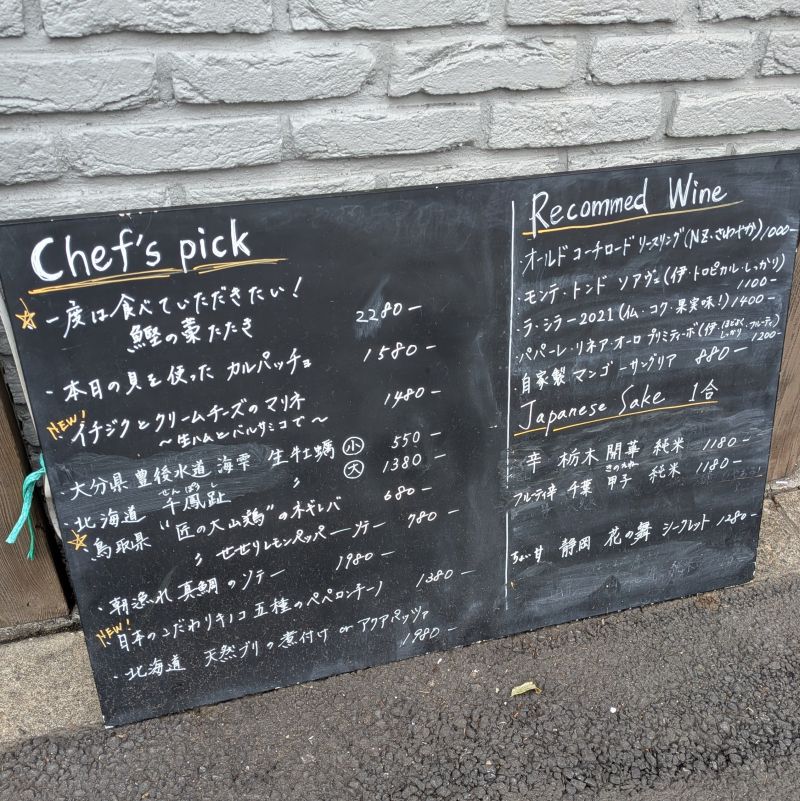 Chef's pick
☆・一度は食べていただきたい!
鰹の藁たたき 2280-
・本日の貝を使った カルパッチョ 1580-
NEW! イチジクとクリームチーズのマリネ 1480-
〜生ハムとバルサミコで〜
・大分県 豊後水道 海雫 生牡蠣 小 550-
・北海道 千鳳趾 せんぽうし 〃 大 1380-
☆鳥取県 "匠の大山鶏"のネギレバ 680-
〃 せせりレモンペッパーソテー 780-
・朝漁れ 真鯛のソテー 1980-
NEW! 日本のこだわりキノコ 五種のペペロンチーノ 1380-
・北海道 天然ブリの煮付け or アクアパッツァ
1980-
Recommed Wine
・オールドコーチロード リースリング(NZ・さわやか)1000-
・モンテ・トンド ソアヴェ(伊・トロピカル・しっかり)
1100-
・ラ・シラー2021(仏・コク・果実味!)1400-
・パパーレ・リネア・オーロ プリミティーボ(伊・ほどよくしっかり・フルーティ)
1200-
・自家製 マンゴーサングリア 880-
Japanese Sake 1合
辛 栃木 開華 純米 1180-
フルーティ辛 千葉 甲子 きのえね 純米 1180-
ちょい甘 静岡 花の舞 シークレット 1280-